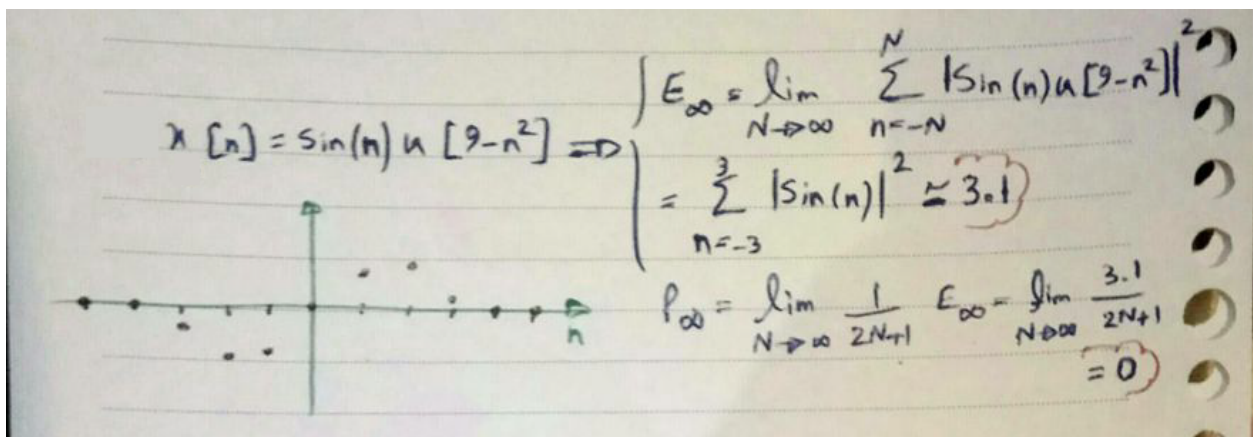 x [n] = sin(n) u [9-n²] ⇒
E∞ = lim N→∞ Σ n=-N N |Sin(n)u[9-n²]|²
= Σ n=-3 3 |Sin(n)|² ≃ 3.1
P∞ = lim N→∞ 1/2N+1 E∞ = lim N→∞ 3.1/2N+1
= 0
n